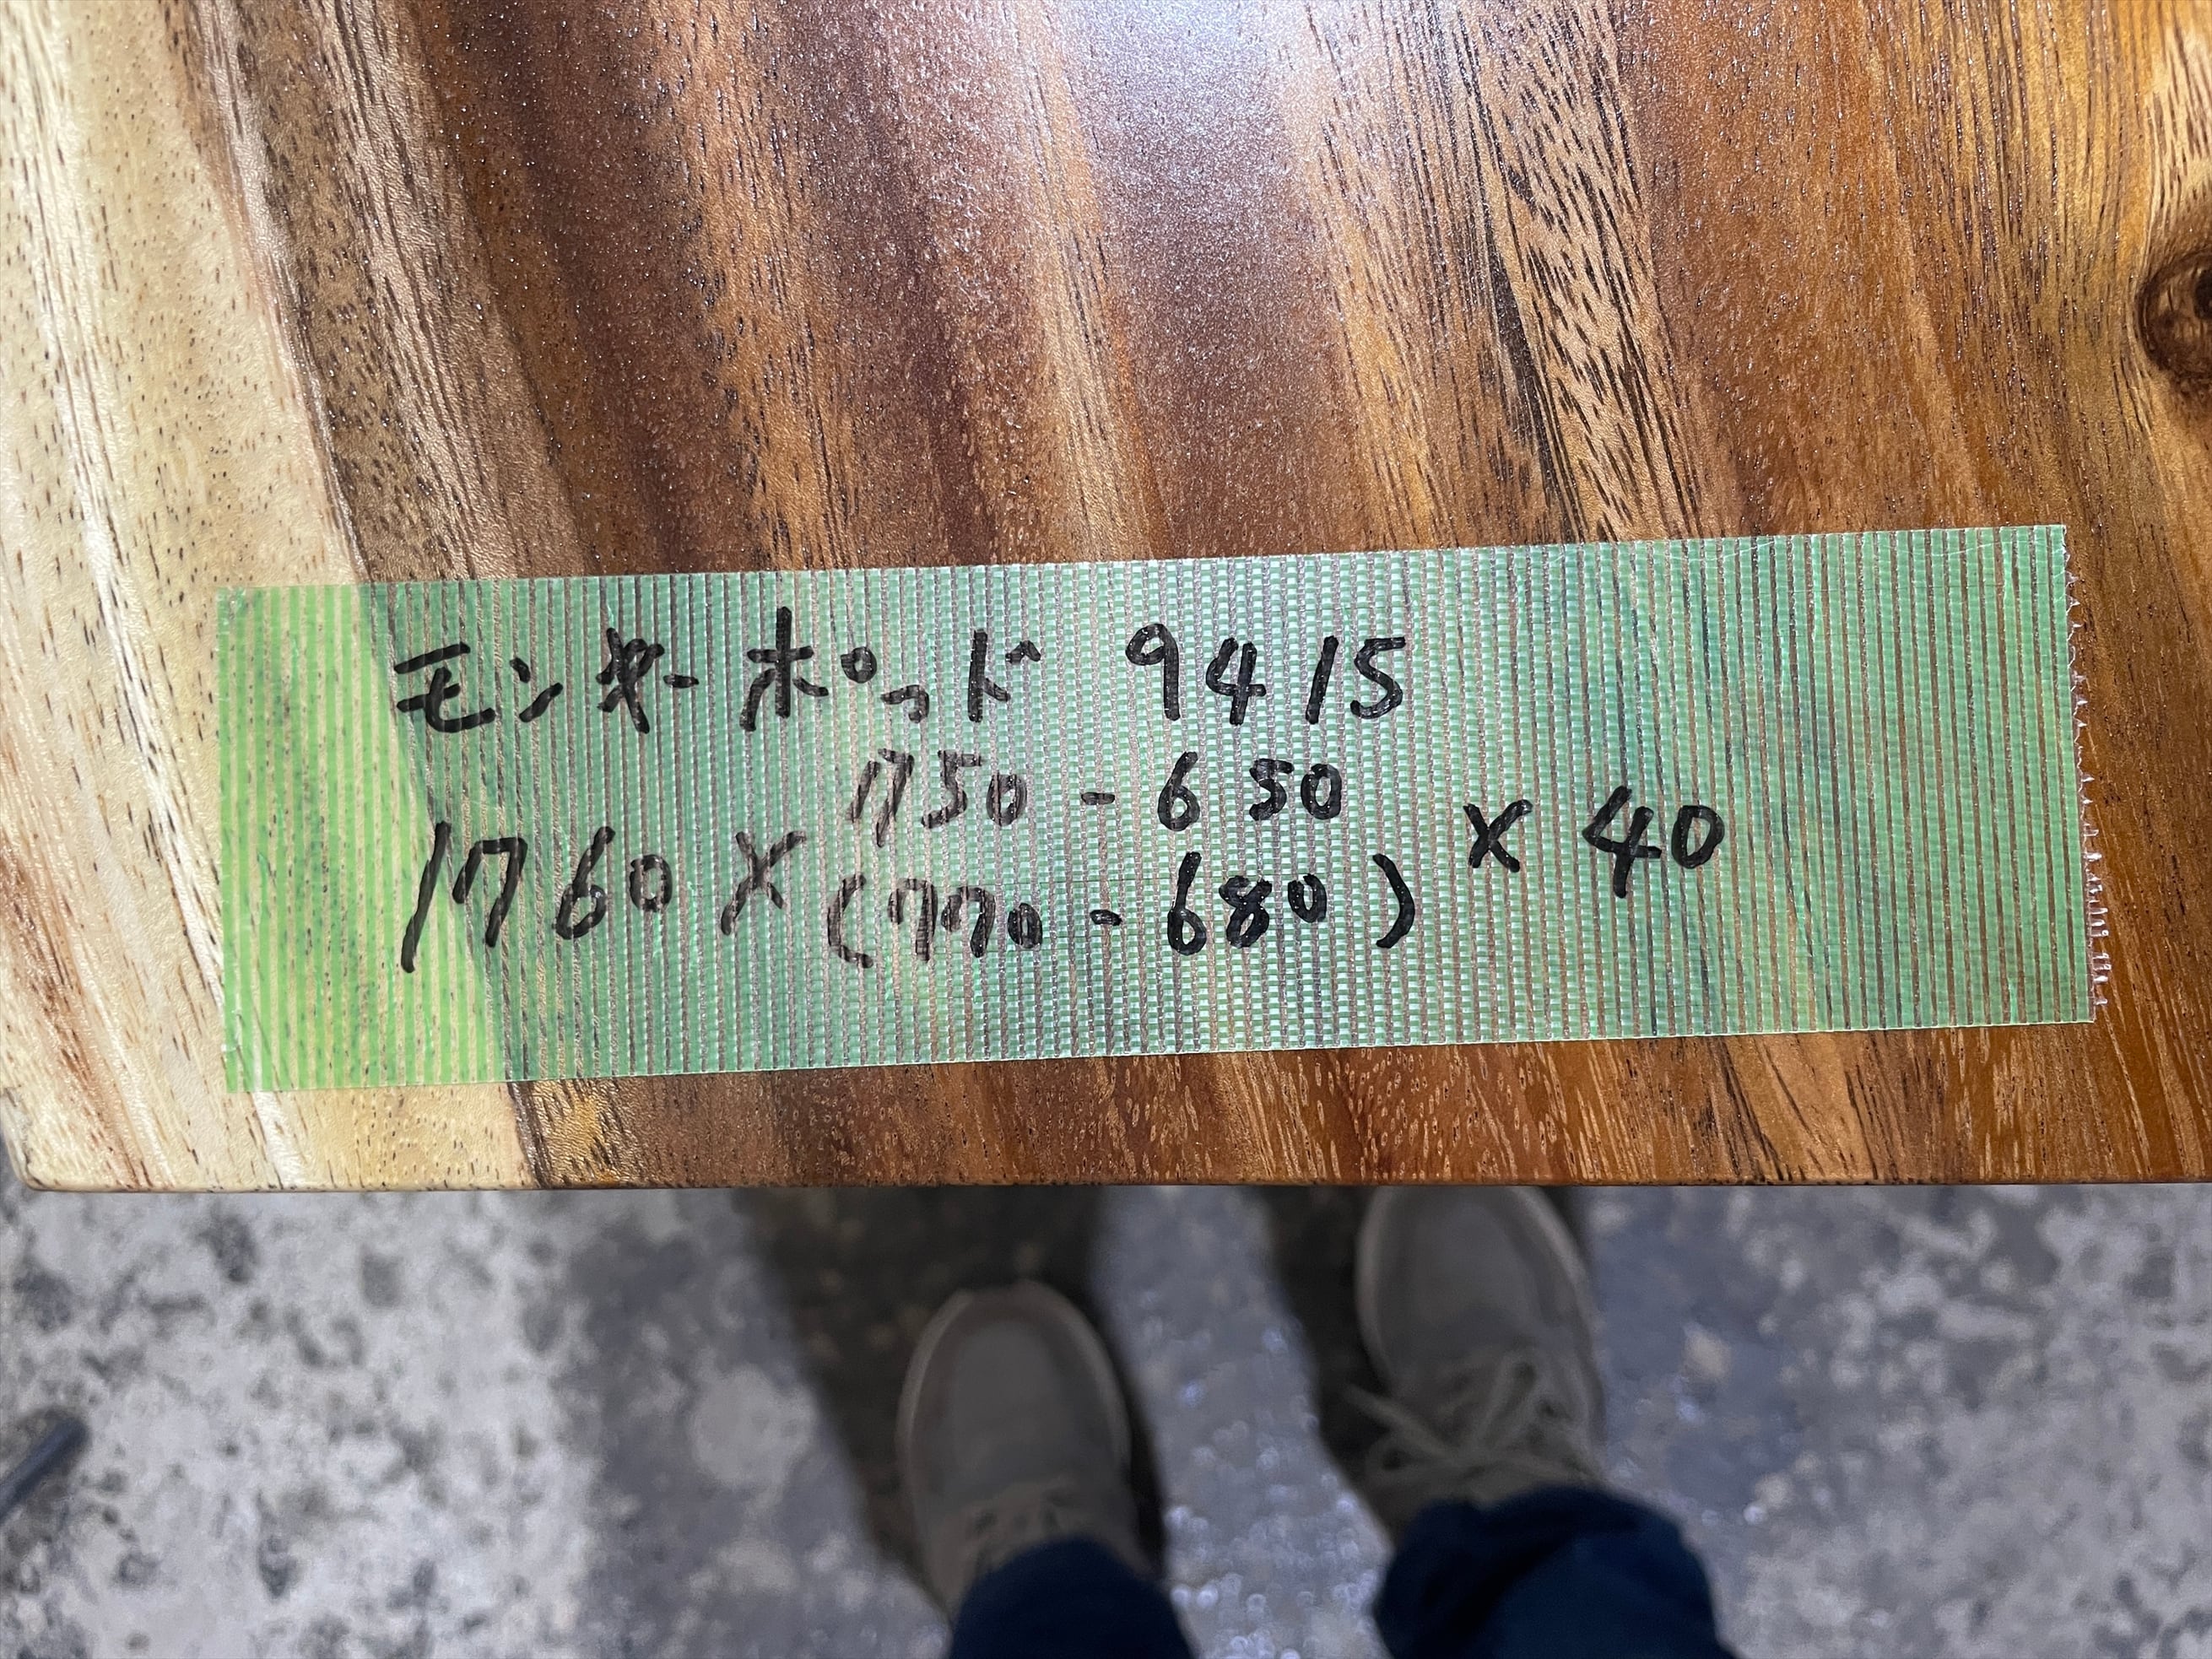 モンキーポッド 9415
750-650
1760×(770-680)×40